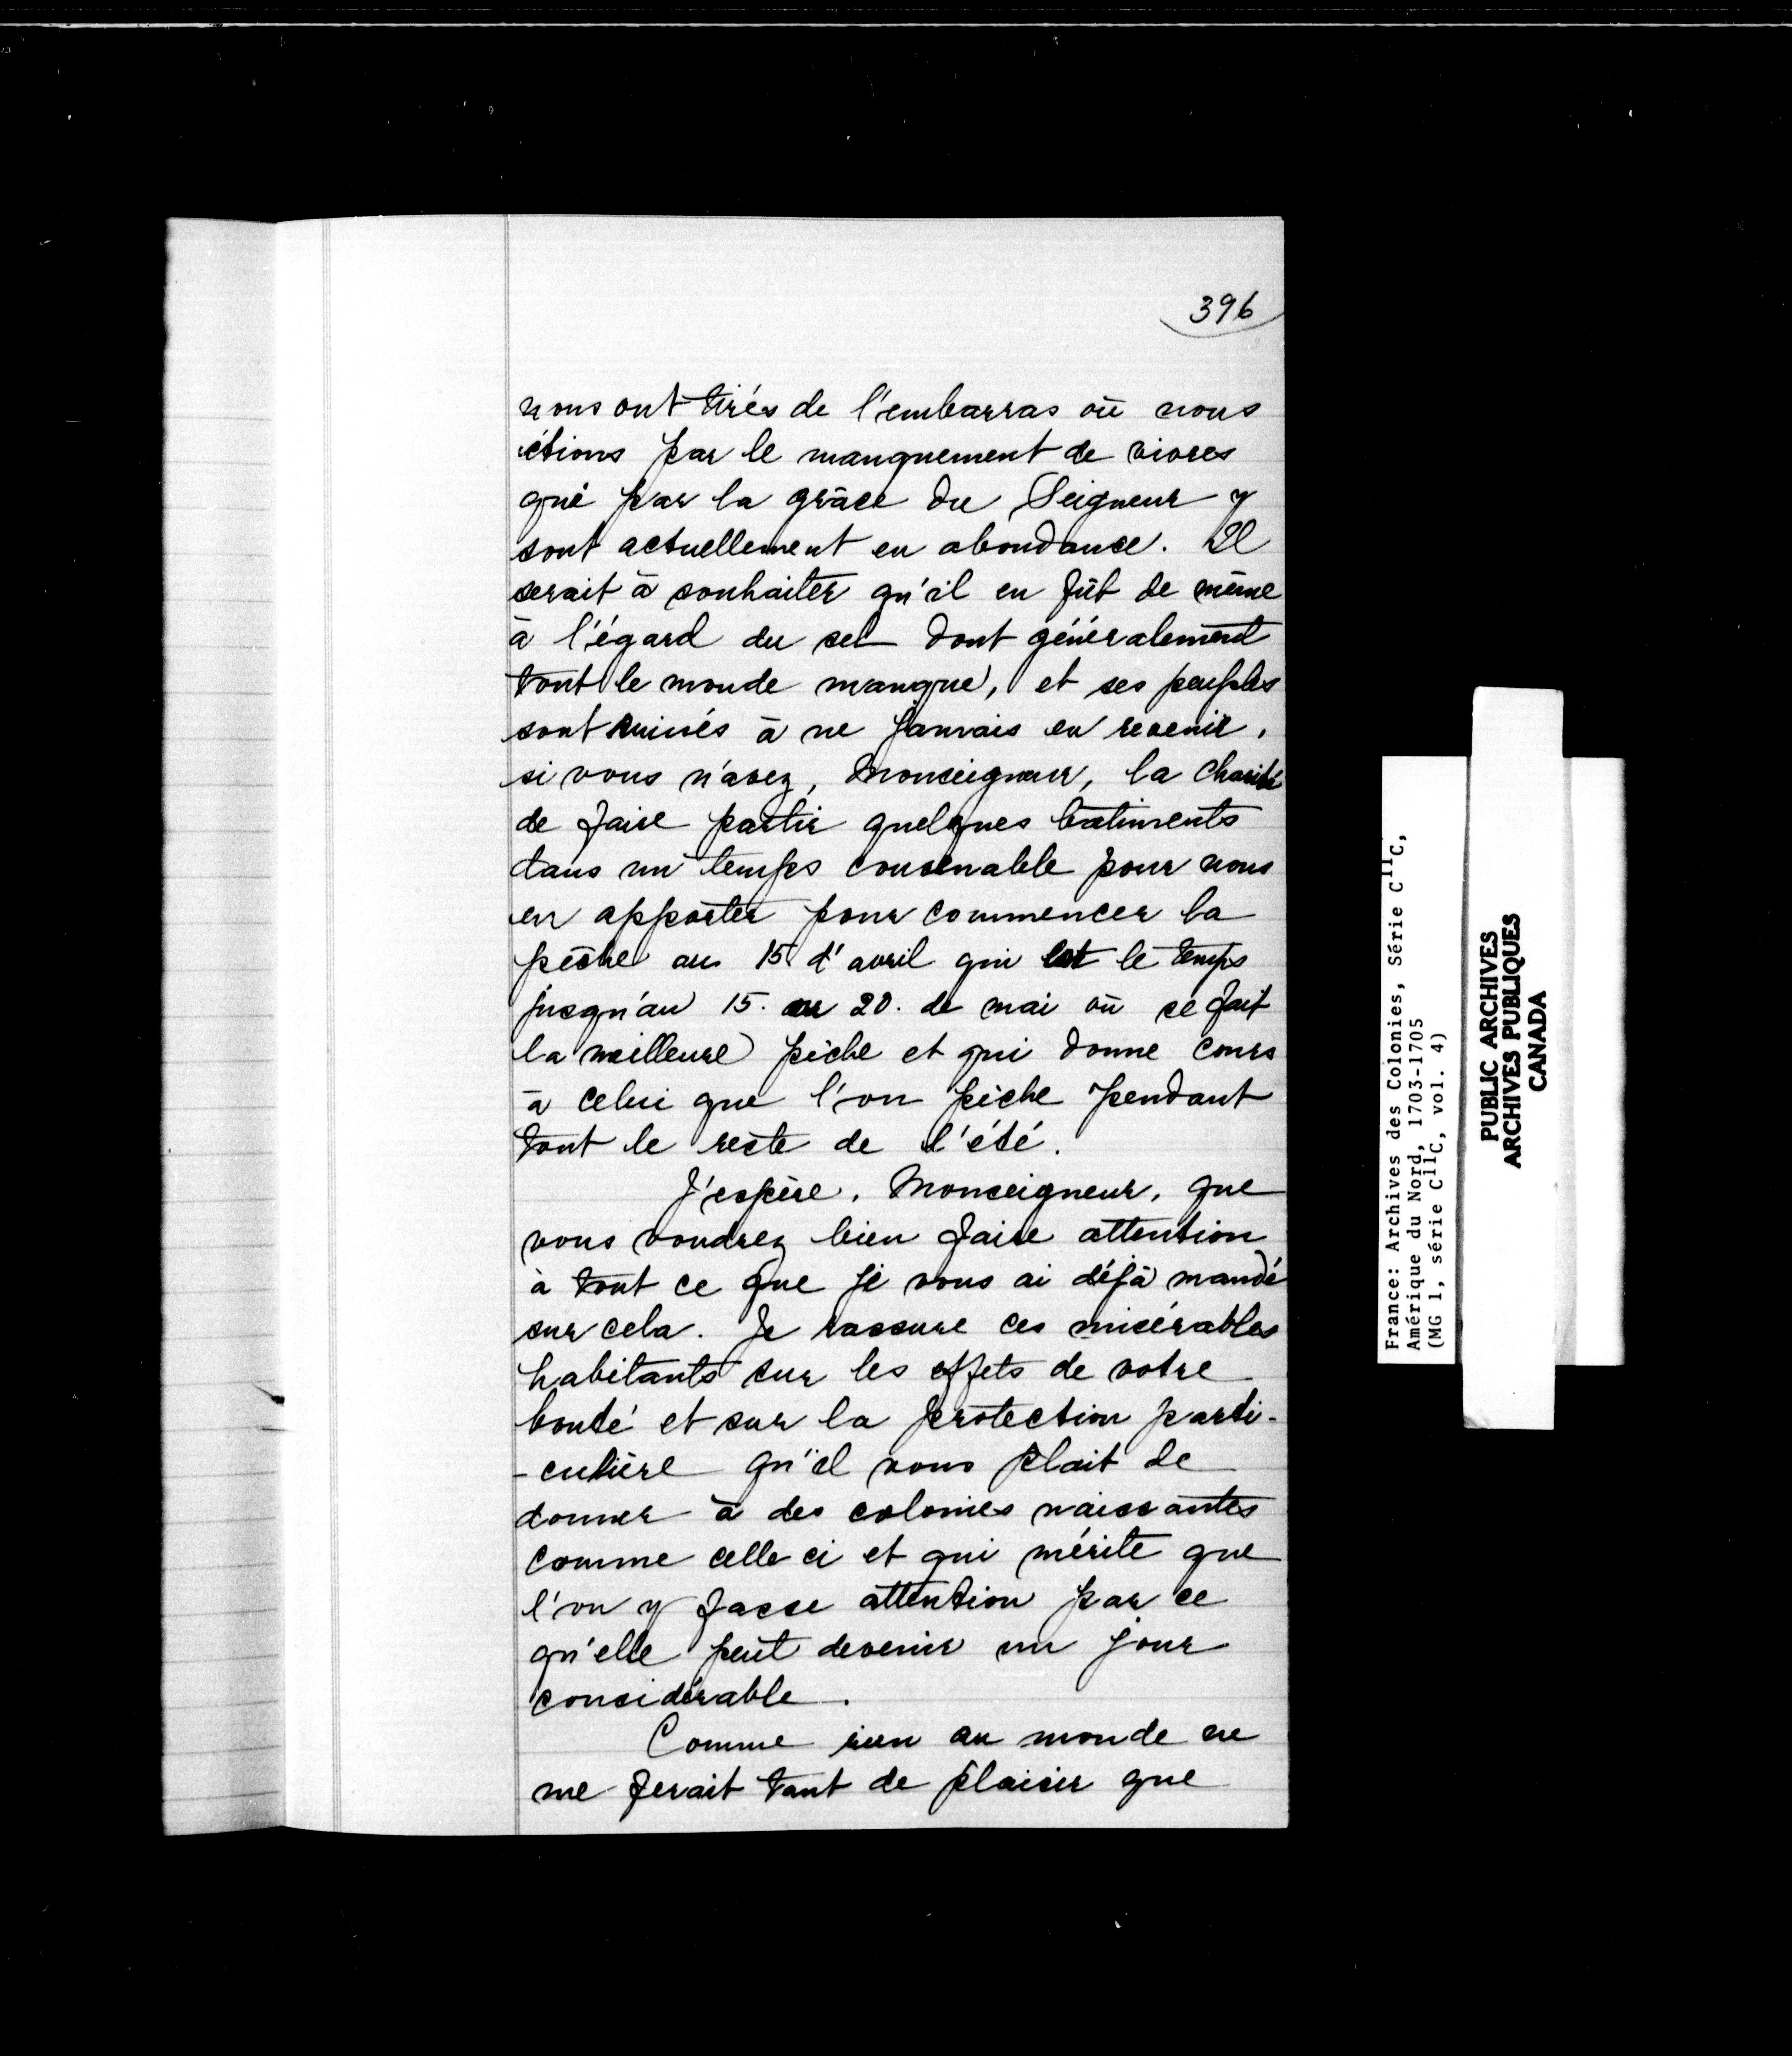 396
nous ont tirés de l'embarras où nous
étions par le manquement de vivres
qui par la grâce du Seigneur y
sont actuellement en abondance. Il
serait à souhaiter qu'il en fût de même
à l'égard du sel dont généralement
tout le monde manque, et ses peuples
sont ruinés à ne jamais en revenir,
si vous n'avez, Monseigneur, la charité
de faire partir quelques bâtiments
dans un temps convenable pour nous
en apporter pour commencer la
pêche au 15 d'avril qui est le temps
jusqu'au 15. ou 20. de mai où se fait
la meilleure pêche et qui donne cours
à celui que l'on pêche pendant
tout le reste de l'été.
J'espère, Monseigneur, que
vous voudrez bien faire attention
à tout ce que je vous ai déjà mandé
sur cela. Je rassure ces misérables
habitants sur les effets de votre
bonté et sur la protection parti-
-culière qu'il vous plait de
donner à des colonies naissantes
comme celle ci et qui mérite que
l'on y fasse attention par ce
qu'elle peut devenir un jour
considérable.
Comme rien au monde ne
me ferait tant de plaisir que
France: Archives des Colonies, Série C11C,
Amérique du Nord, 1703-1705
(MG 1, série C11C, vol. 4)
PUBLIC ARCHIVES
ARCHIVES PUBLIQUES
CANADA